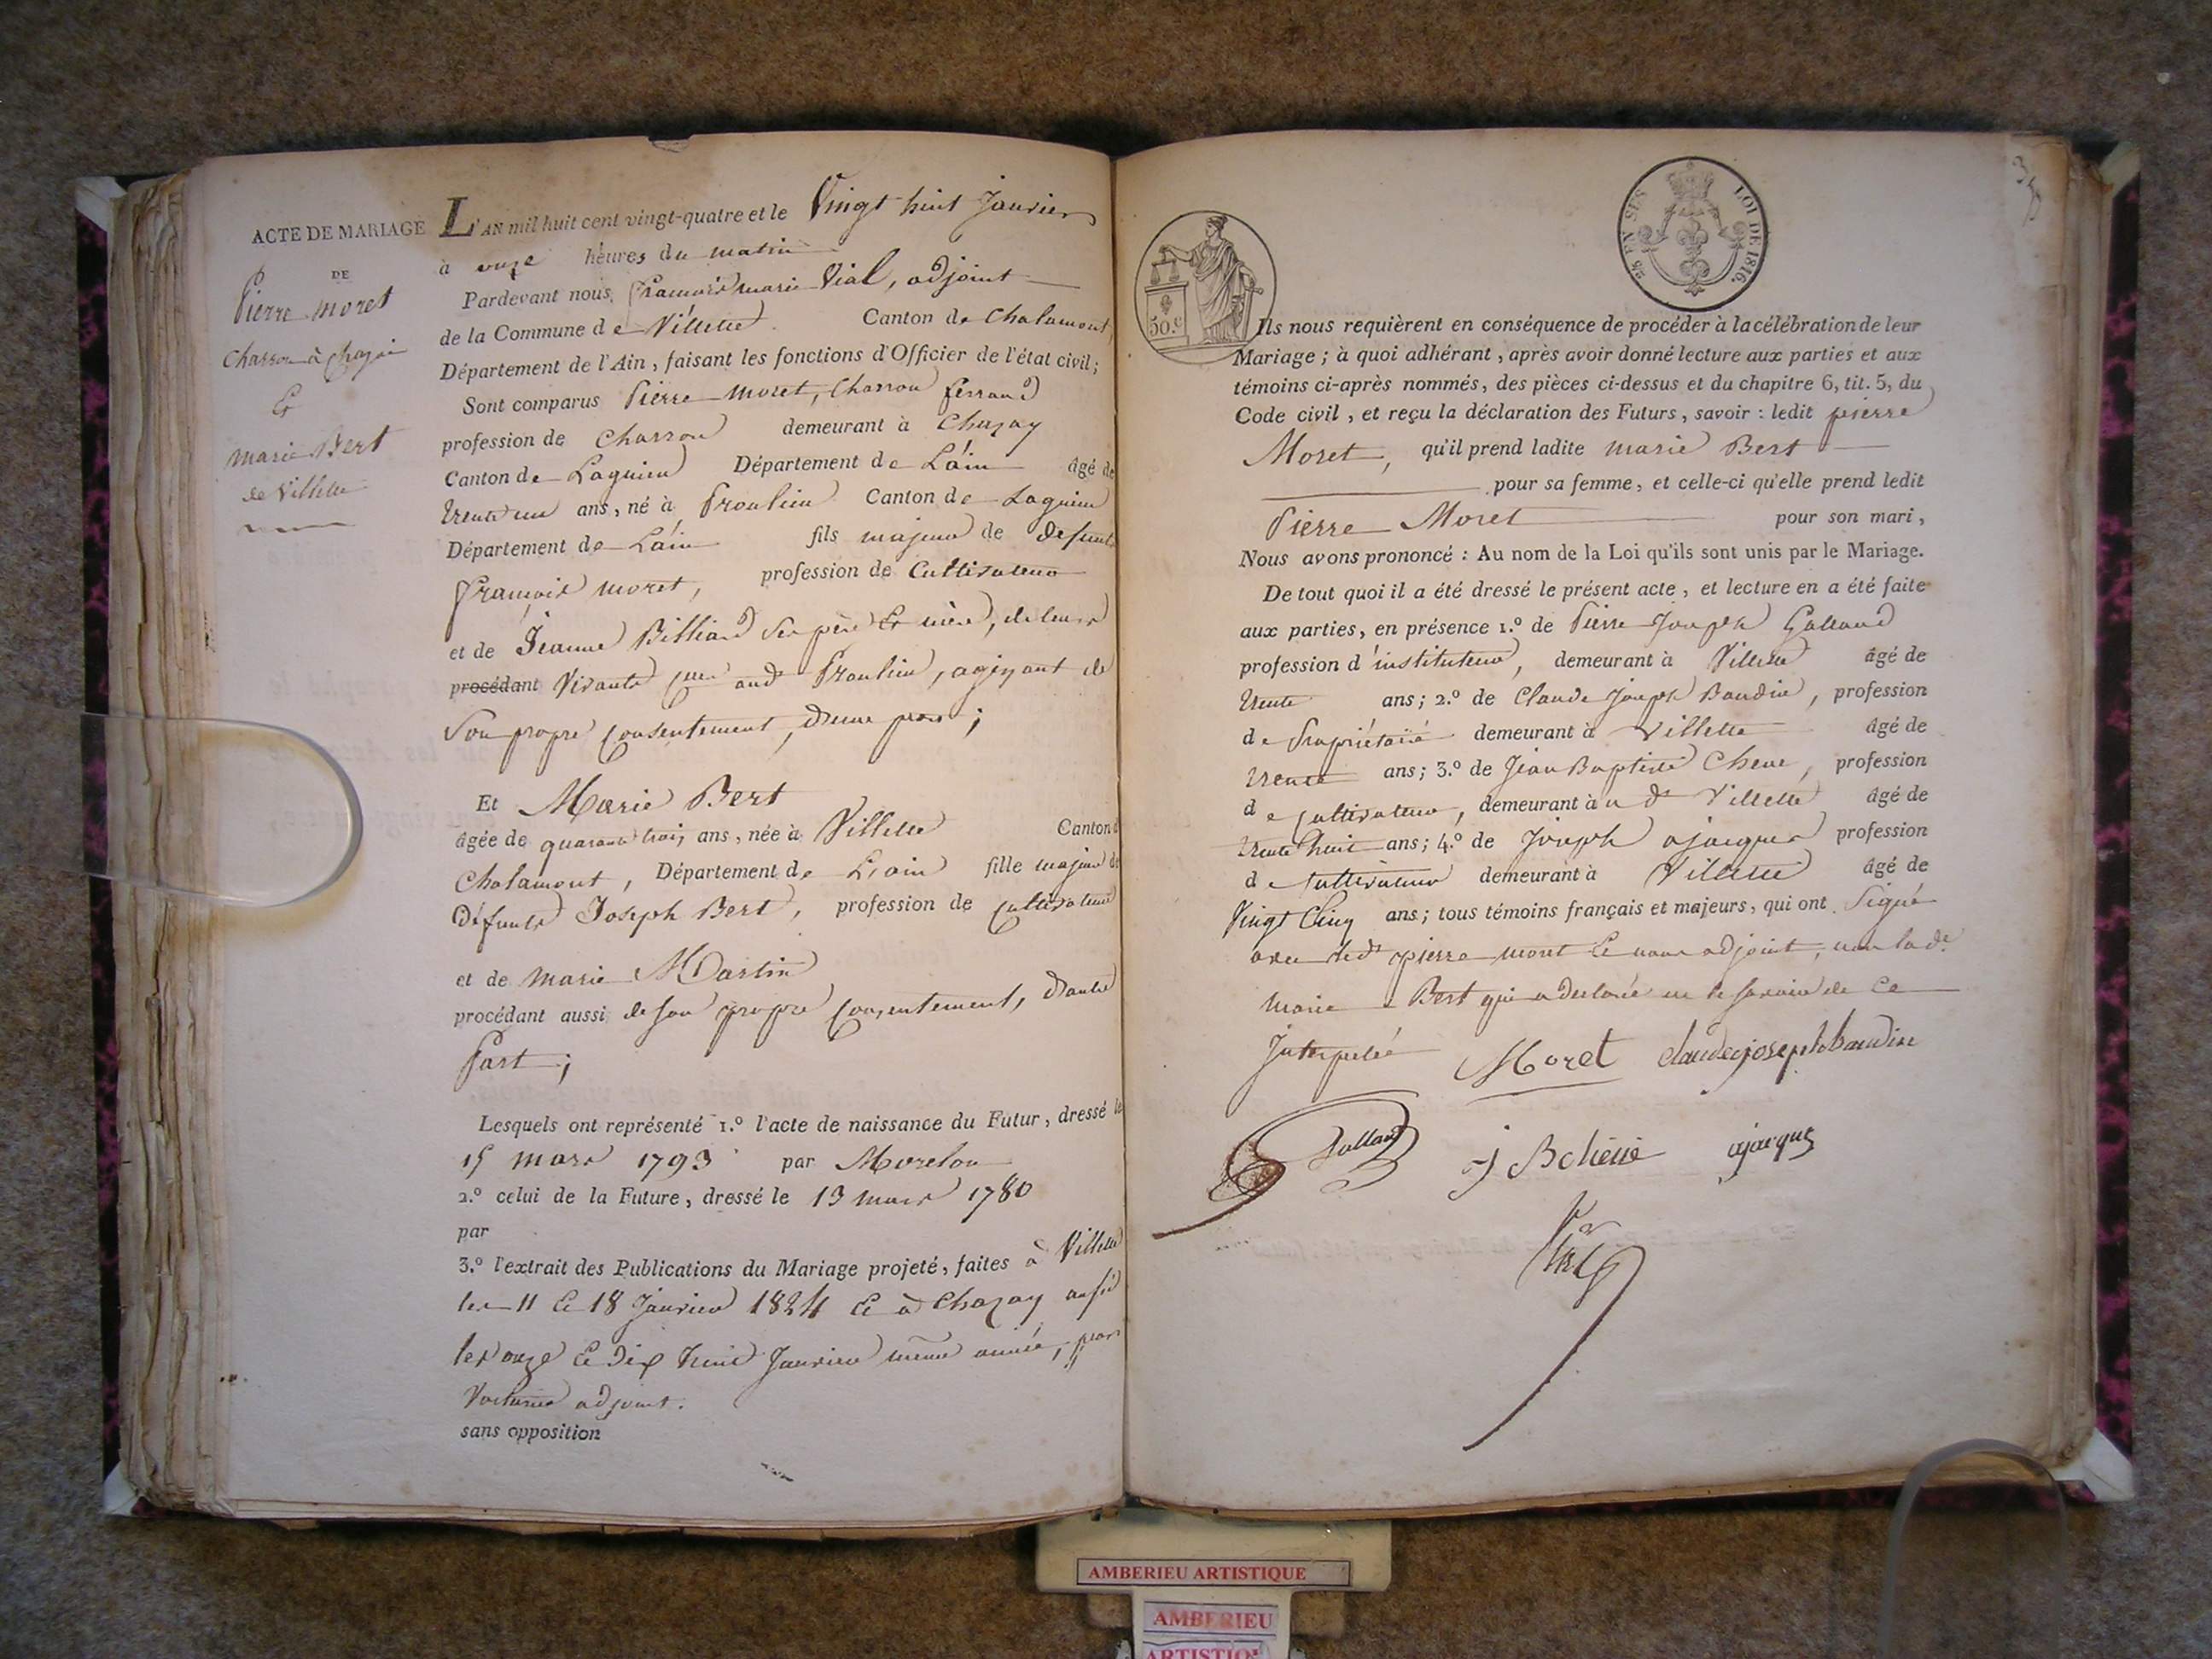 ACTE DE MARIAGE
DE
Pierre Moret
Charron à Chazai
Et
Marie Bert
de Villette
L'AN mil huit cent vingt-quatre et le Vingt huit Janvier
à onze heures du matin
Pardevant nous, François marie Vial, adjoint
de la Commune de Villette Canton de Chalamont,
Département de l'Ain, faisant les fonctions d'Officier de l'état civil;
Sont comparus Pierre Moret, Charron ferrand
profession de Charron demeurant à Chazay
Canton de Lagnieu Département de L'ain âgé de
trente un ans, né à Proulieu Canton de Lagnieu
Département de L'ain fils majeur de defunts
François moret, profession de Cultivateur
et de Jeanne Billiard Ses père Et mère, de leurs
procédant Vivants aud Proulieu, agissant de
Son propre Consentement, D'une part;
Et Marie Bert
âgée de quarante trois ans, née à Villette Canton d
Chalamont, Département de L'ain fille majeure de
Défunts Joseph Bert, profession de Cultivateur
et de Marie Martin
procédant aussi de son propre Consentement, D'autre
Part;
Lesquels ont représenté 1.º l'acte de naissance du Futur, dressé le
15 mars 1793 par Morelon
2.º celui de la Future, dressé le 13 mars 1780
par
3.º l'extrait des Publications du Mariage projeté, faites à Villette
les 11 Et 18 Janvier 1824 Et à Chazay aussi
les onze Et Dix huit Janvier même année, par
adjoint.
sans opposition
35
25 EN SUS
LOI DE 1816.
50.c
Ils nous requièrent en conséquence de procéder à la célébration de leur
Mariage; à quoi adhérant, après avoir donné lecture aux parties et aux
témoins ci-après nommés, des pièces ci-dessus et du chapitre 6, tit. 5, du
Code civil, et reçu la déclaration des Futurs, savoir: ledit pierre
Moret, qu'il prend ladite marie Bert
pour sa femme, et celle-ci qu'elle prend ledit
Pierre Moret pour son mari,
Nous avons prononcé: Au nom de la Loi qu'ils sont unis par le Mariage.
De tout quoi il a été dressé le présent acte, et lecture en a été faite
aux parties, en présence 1.º de Pierre Joseph Galland
profession d'instituteur, demeurant à Villette âgé de
trente ans; 2.º de Claude Joseph Baudin, profession
de Propriétaire demeurant à Villette âgé de
trente ans; 3.º de Jean Baptiste Chene, profession
de Cultivateur, demeurant à u dt Villette âgé de
trente huit ans; 4.º de Joseph ajacques profession
de Cultivateur demeurant à Villette âgé de
Vingt Cinq ans; tous témoins français et majeurs, qui ont Signé
avec led.t pierre moret Et nous adjoint, non lad.e
Marie Bert qui a declaré ne le savoir de ce
Interpelée
Moret claudejosephbaudin
Galland J B chêne ajacques
Vial
AMBERIEU ARTISTIQUE
AMBERIEU
ARTISTIQUE